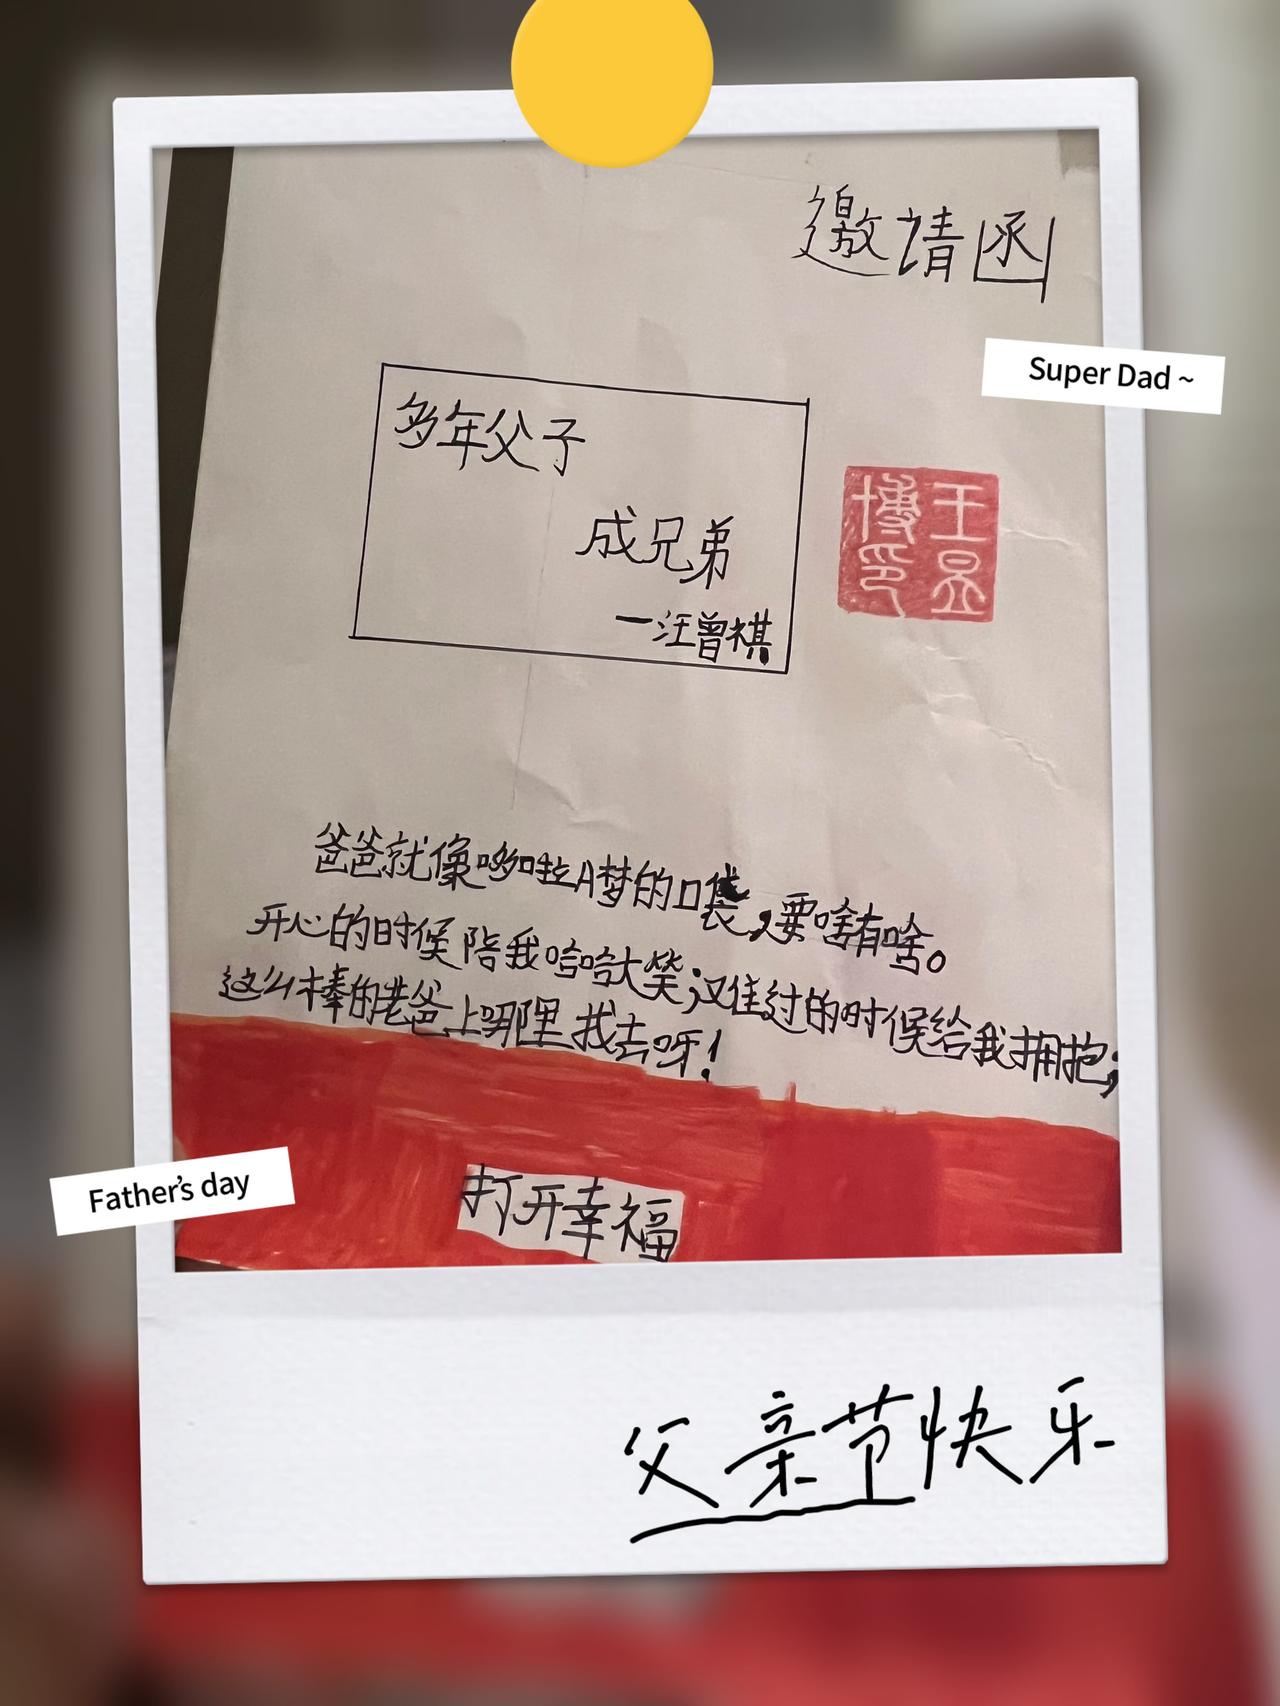 邀请函
Super Dad ~
多年父子
成兄弟
一汪曾祺
王昱
博印
爸爸就像哆啦A梦的口袋,要啥有啥。
开心的时候陪我哈哈大笑;难过的时候给我拥抱;
这么棒的老爸上哪里找去呀!
Father's day
打开幸福
父亲节快乐